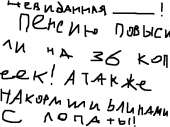 невиданная ——!
пенсию повыси
ли на 36 коп
еек! а также
накормили блинами
с лопаты!